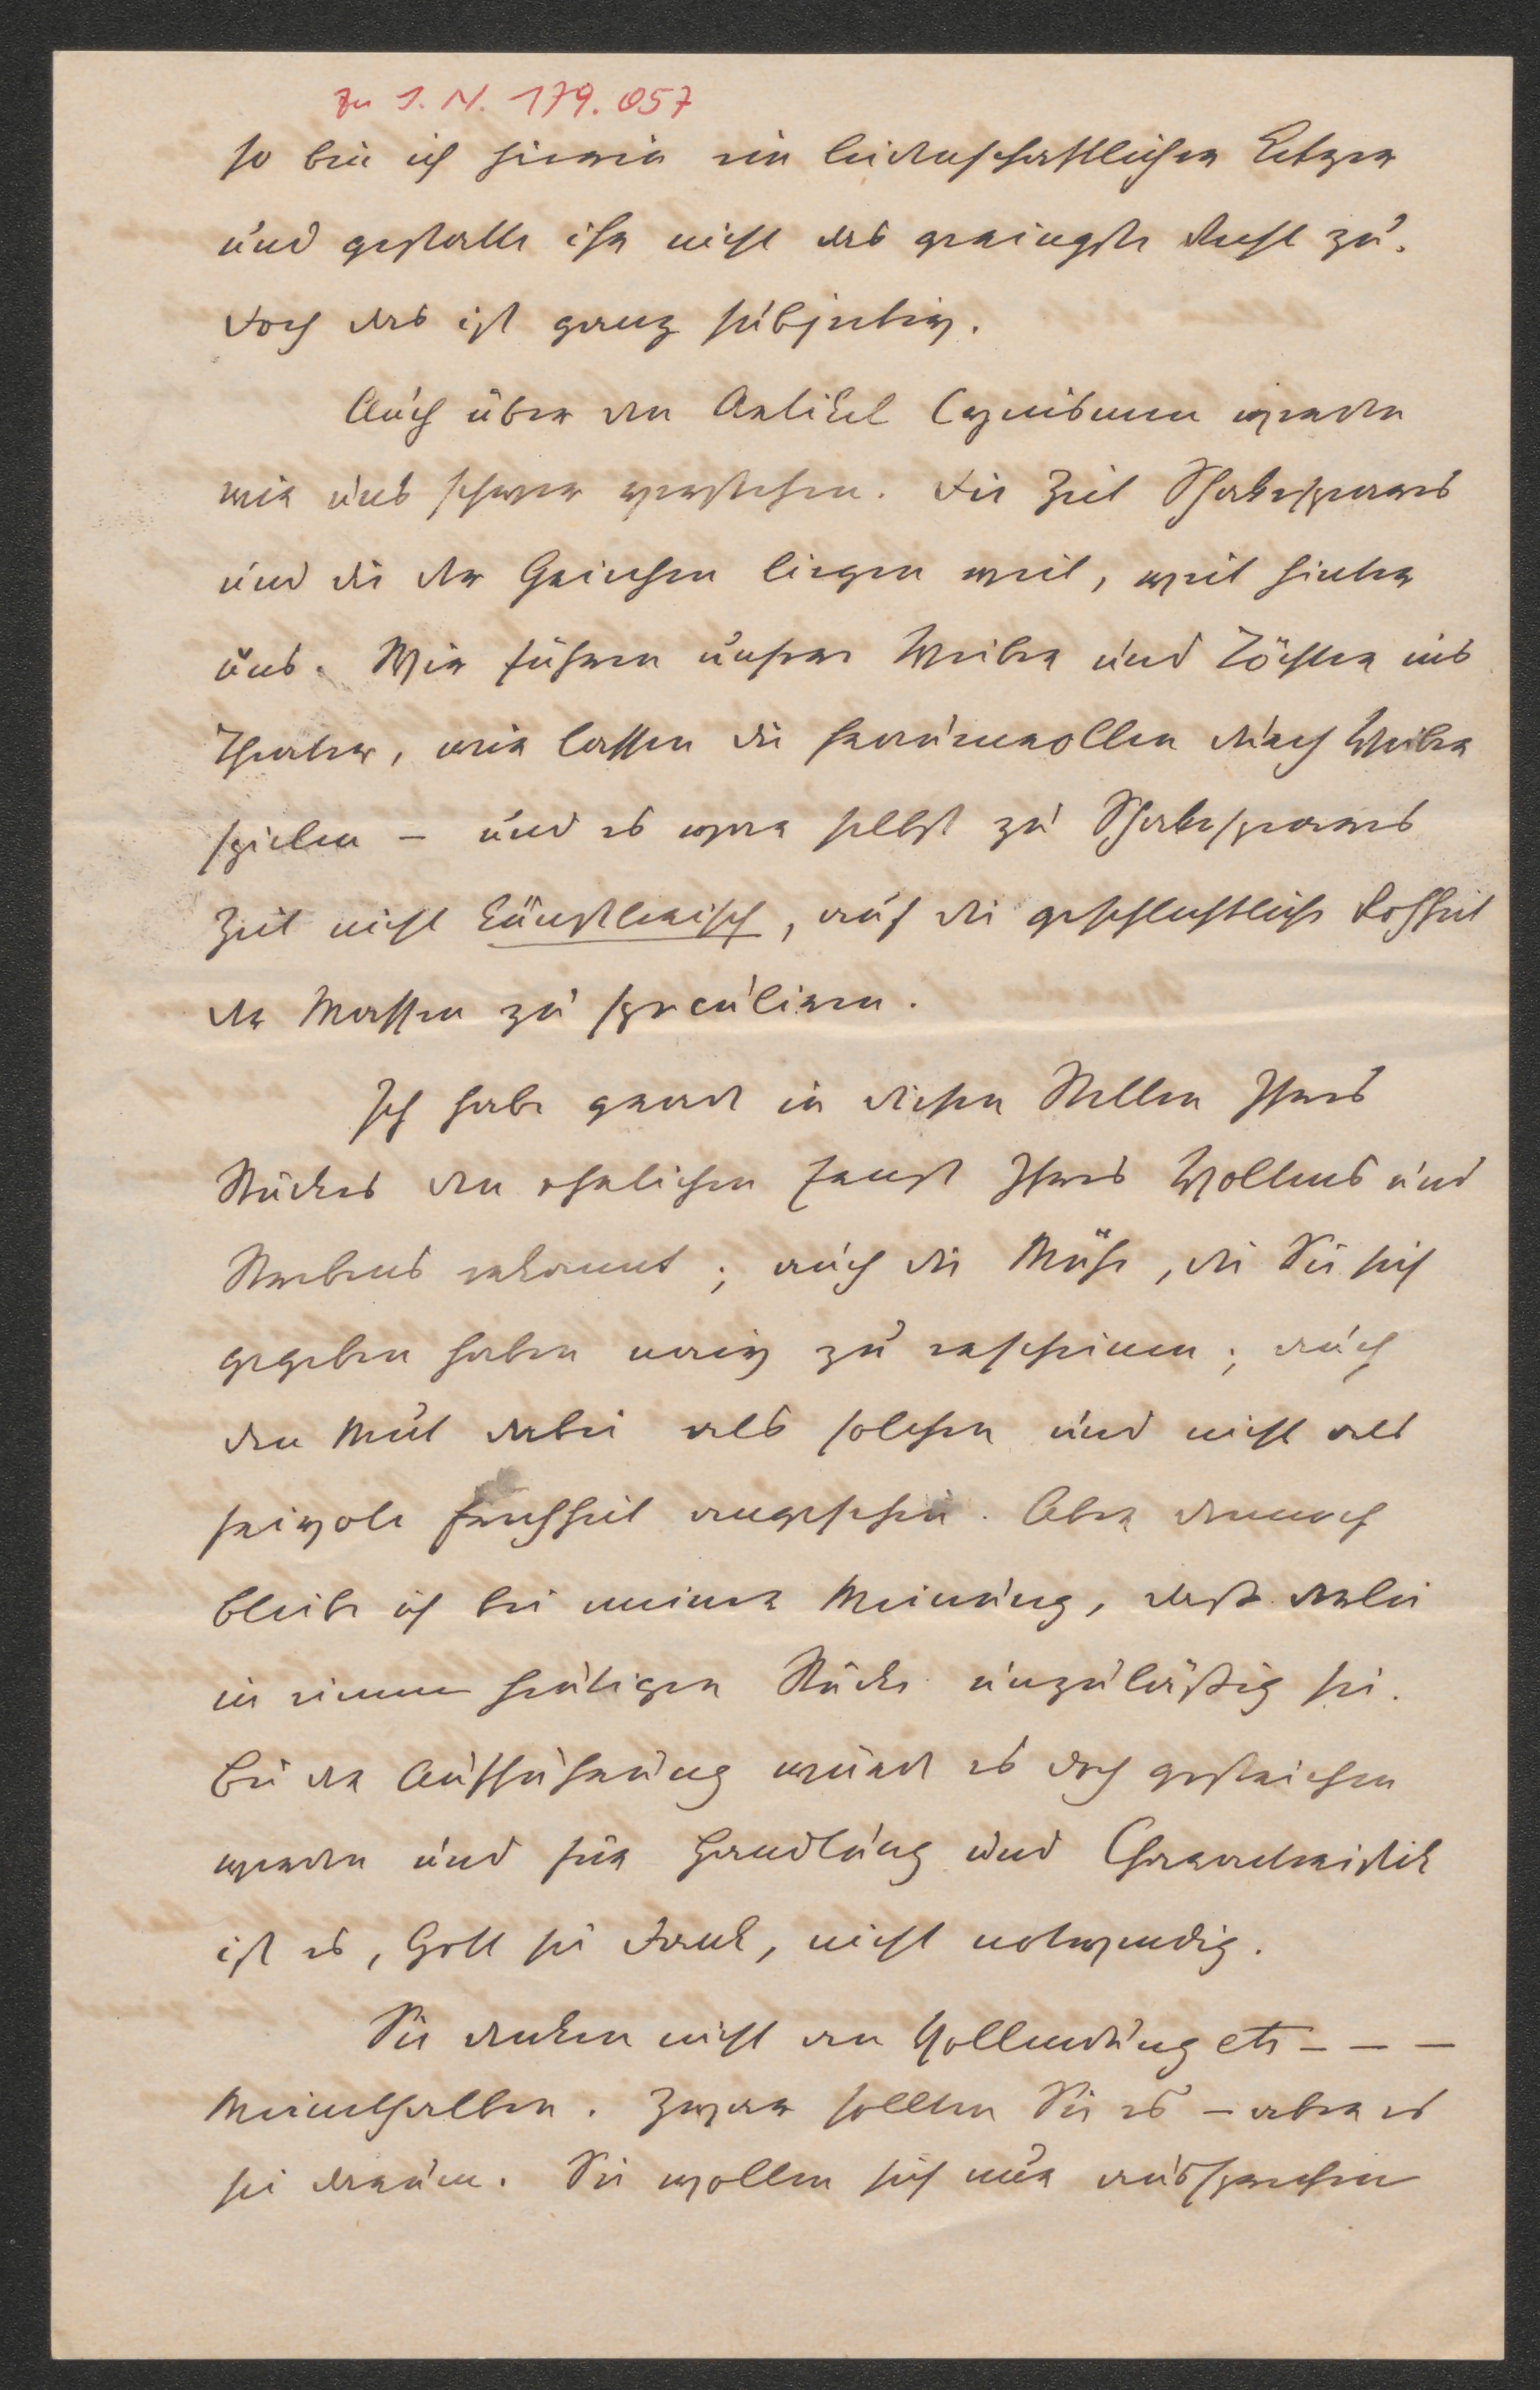 Zu I. N. 179.057
so bin ich hierin ein leidenschaftlicher Ketzer
und gestatte ihr nicht das geringste Recht zu.
Doch das ist ganz subjectiv.
Auch über den Artikel Cynismen werden
wir uns schwer verstehen. Die Zeit Shakespeares
und die der Griechen liegen weit, weit hinter
uns. Wir führen unsere Weiber und Töchter ins
Theater, wir lassen die Frauenrollen durch Weiber
spielen – und es war selbst zu Shakespeares
Zeit nicht künstlerisch, auf die geschlechtliche Rohheit
der Massen zu speculieren.
Ich habe gerade in diesen Stellen Ihres
Stückes den ehrlichen Ernst Ihres Wollens und
Strebens erkannt; auch die Mühe, die Sie sich
gegeben haben naiv zu erscheinen; auch
den Mut dabei als solchen und nicht als
frivole Frechheit angesehen. Aber dennoch
bleibe ich bei meiner Meinung, daß derlei
in einem heutigen Stücke unzuläßig sei.
Bei der Aufführung würde es doch gestrichen
werden und für Handlung und Charakteristik
ist es, Gott sei Dank, nicht notwendig.
Sie denken nicht an Vollendung etc – – –
Meinethalben. Zwar sollten Sie es – aber es
sei darum. Sie wollen sich nur aussprechen